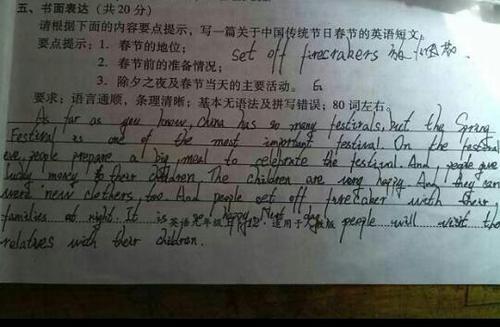 五、书面表达（共20分）
请根据下面的内容要点提示，写一篇关于中国传统节日春节的英语短文。
要点提示：1. 春节的地位；
set off firecrakers
2. 春节前的准备情况；
3. 除夕之夜及春节当天的主要活动。
要求：语言通顺，条理清晰；基本无语法及拼写错误；80词左右。
As far as you know, China has so many festivals, but the Spring
Festival is one of the most important festival. On the festival
eve, people prepare a big meal to celebrate the festival. And people give
lucky money to their children. The children are very happy. And they can
were new clothers, too. And people set off firecraker with their
families at night. It is so happy. Next day, people will visit the
英语九年级 适用于人教版
relatives with their children.